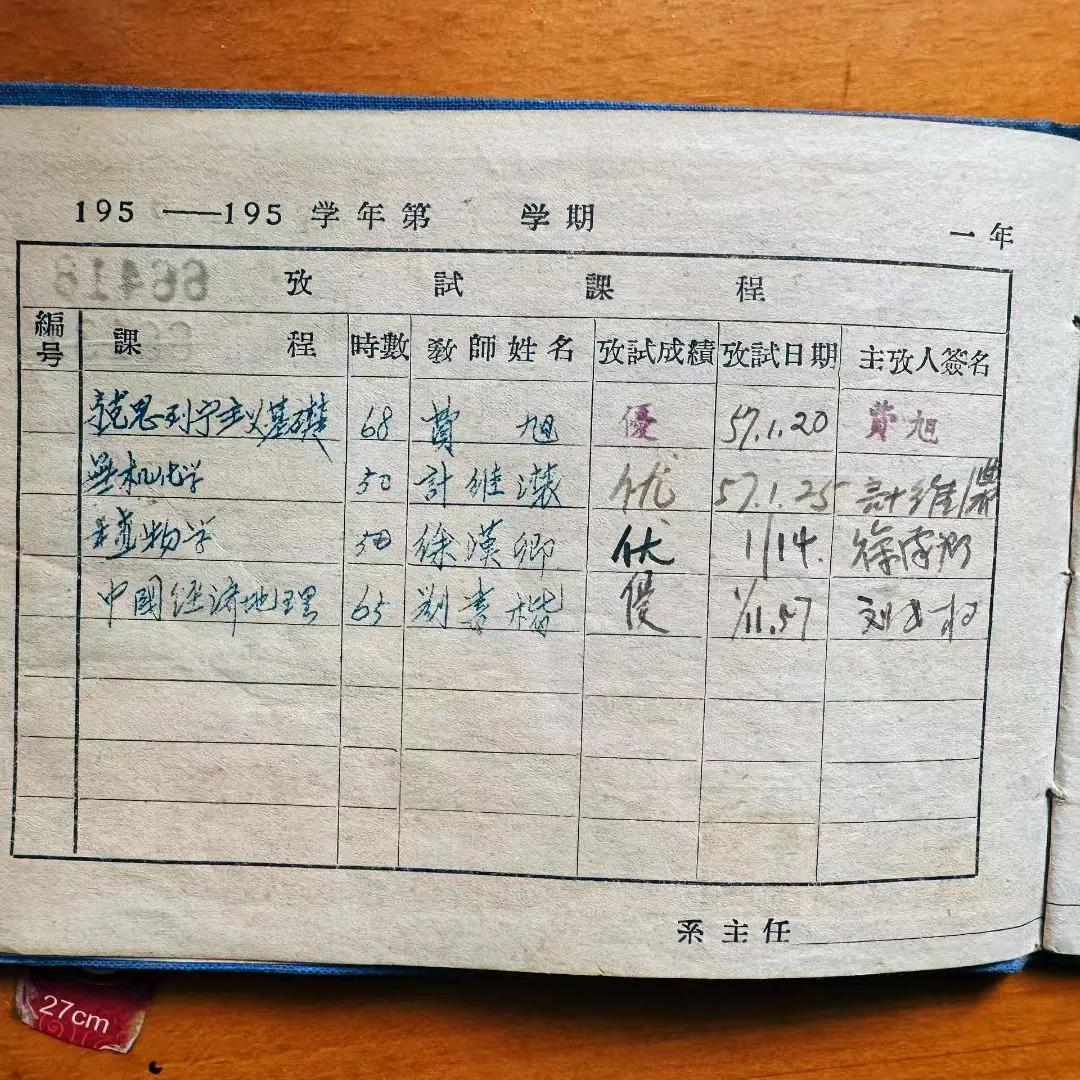 195 ——195 学年第 学期
一年
66418
攷試課程
編号 課程 時數 教師姓名 攷試成績 攷試日期 主攷人簽名
克思列宁主义基礎 68 費旭 優 57.1.20 費旭
無机化学 50 計維 优 57.1.25 計維
植物学 50 徐漢卿 优 1/14. 徐漢卿
中國經濟地理 65 刘書楷 優 1/11.57 刘书
系主任
27cm